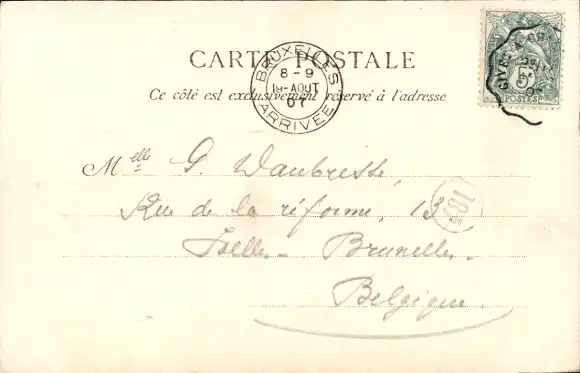 CARTE POSTALE
Ce côté est exclusivement réservé à l'adresse
BRUXELLES
8-9
19-AOUT
07
ARRIVEE
GIVET
5
POSTES
Melle G. Daubresse,
Rue de la réforme, 13
181
Ixelles - Bruxelles -
Belgique.